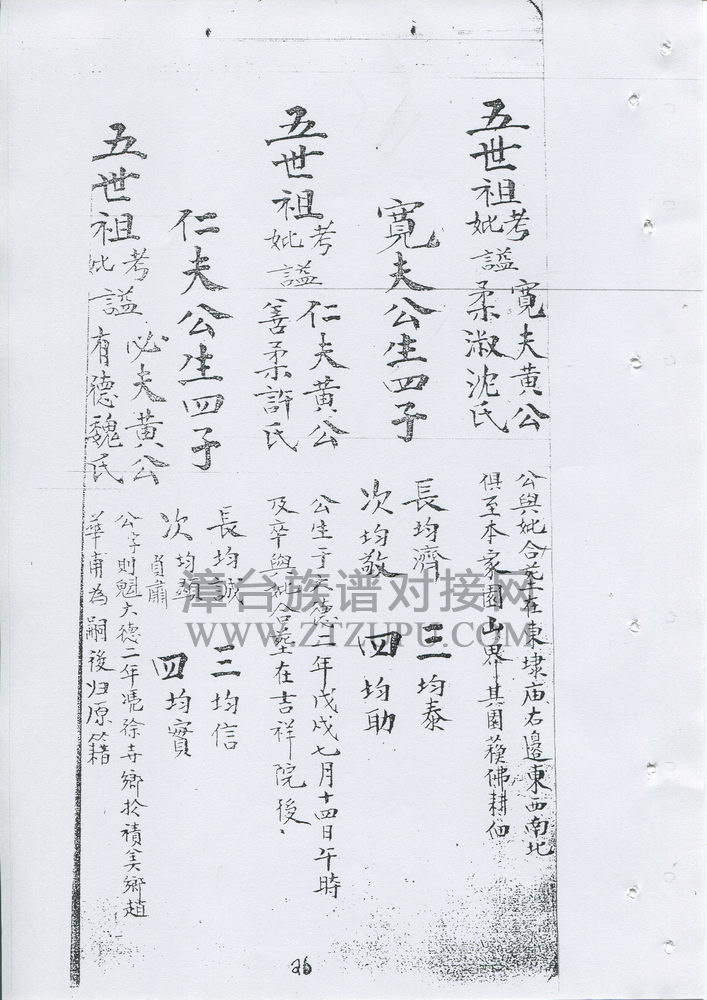 五世祖 考 寬夫黃公
妣 謚 柔淑沈氏
公與妣合葬在東埭庙右邊東西南北
俱至本家園山界其園蔱佛耕佃
寬夫公生四子
長均濟 三均泰
次均敬 四均助
五世祖 考 仁夫黃公
妣 謚 善柔許氏
公生于大德二年戊戌七月十四日午時
及卒與妣合塟在吉祥院後
仁夫公生四子
長均誠 三均信
次均顯 四均實
五世祖 考 必夫黃公
妣 謚 有德魏氏
公字則魁大德二年凴徐寺鄉於積美鄉趙
華甫為嗣後归原籍
漳台族谱对接网
WWW.ZTZUPU.COM
26